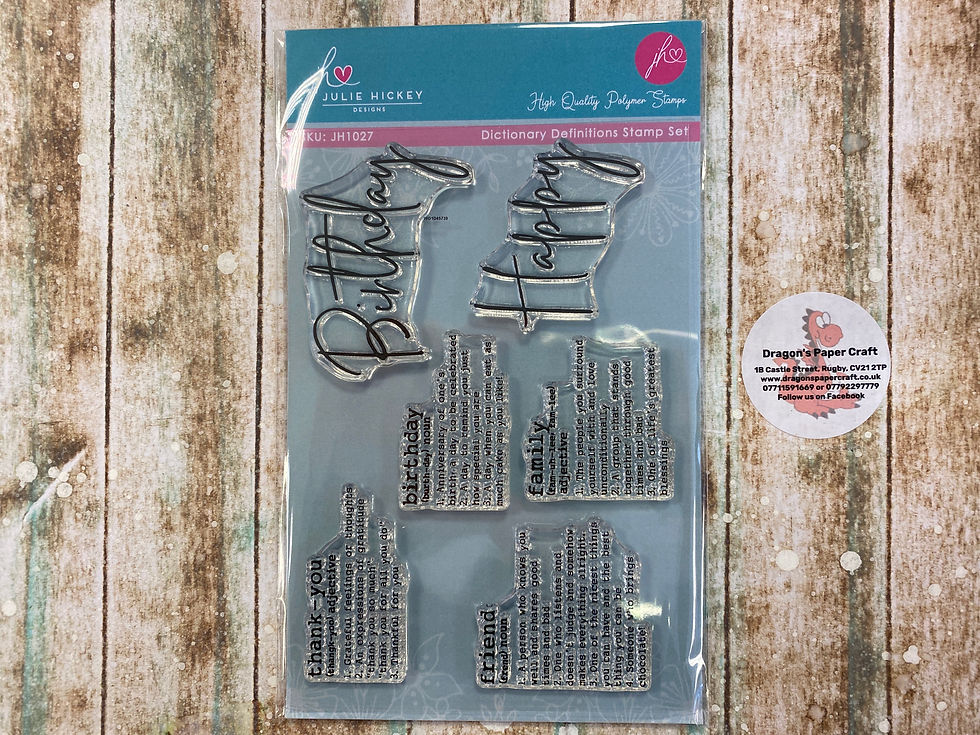 JULIE HICKEY
DESIGNS
jh
High Quality Polymer Stamps
KU: JH1027
Dictionary Definitions Stamp Set
Birthday
Happy
birthday
noun
1. Anniversary of one's
birth - a day to be celebrated
2. A day to remind you just
how special you are
3. A day when you can eat as
much cake as you like!
family
adjective
1. The people you surround
yourself with and love
unconditionally
2. A group that stands
together through good
times and bad
3. One of life's greatest
blessings
thank-you
(thangk-yoo) adjective
1. Grateful feelings or thoughts
2. An expressions of gratitude
"thank you so much"
"thank you for all you do"
3. Thankful for you
friend
(frend) noun
1. A person who knows you
well and shares good
times and bad
2. One who listens and
doesn't judge and somehow
makes everything alright.
3. One of the nicest things
you can have and the best
thing you can be
4. Someone who brings
chocolate!
Dragon's Paper Craft
1B Castle Street, Rugby, CV21 2TP
www.dragonspapercraft.co.uk
07711591669 or 07792297779
Follow us on Facebook